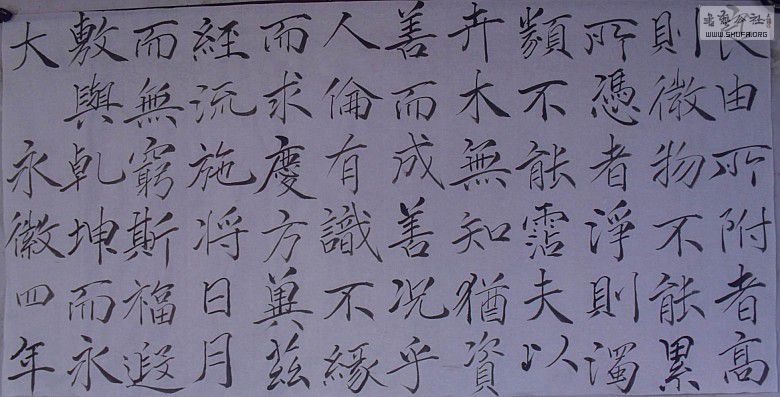 良由所附者高
則微物不能累
所憑者淨則濁
類不能霑夫以
卉木無知猶資
善而成善況乎
人倫有識不緣
而求慶方冀茲
經流施將日月
而無窮斯福遐
敷與乾坤而永
大 永徽四年
WWW.SHUFA.ORG